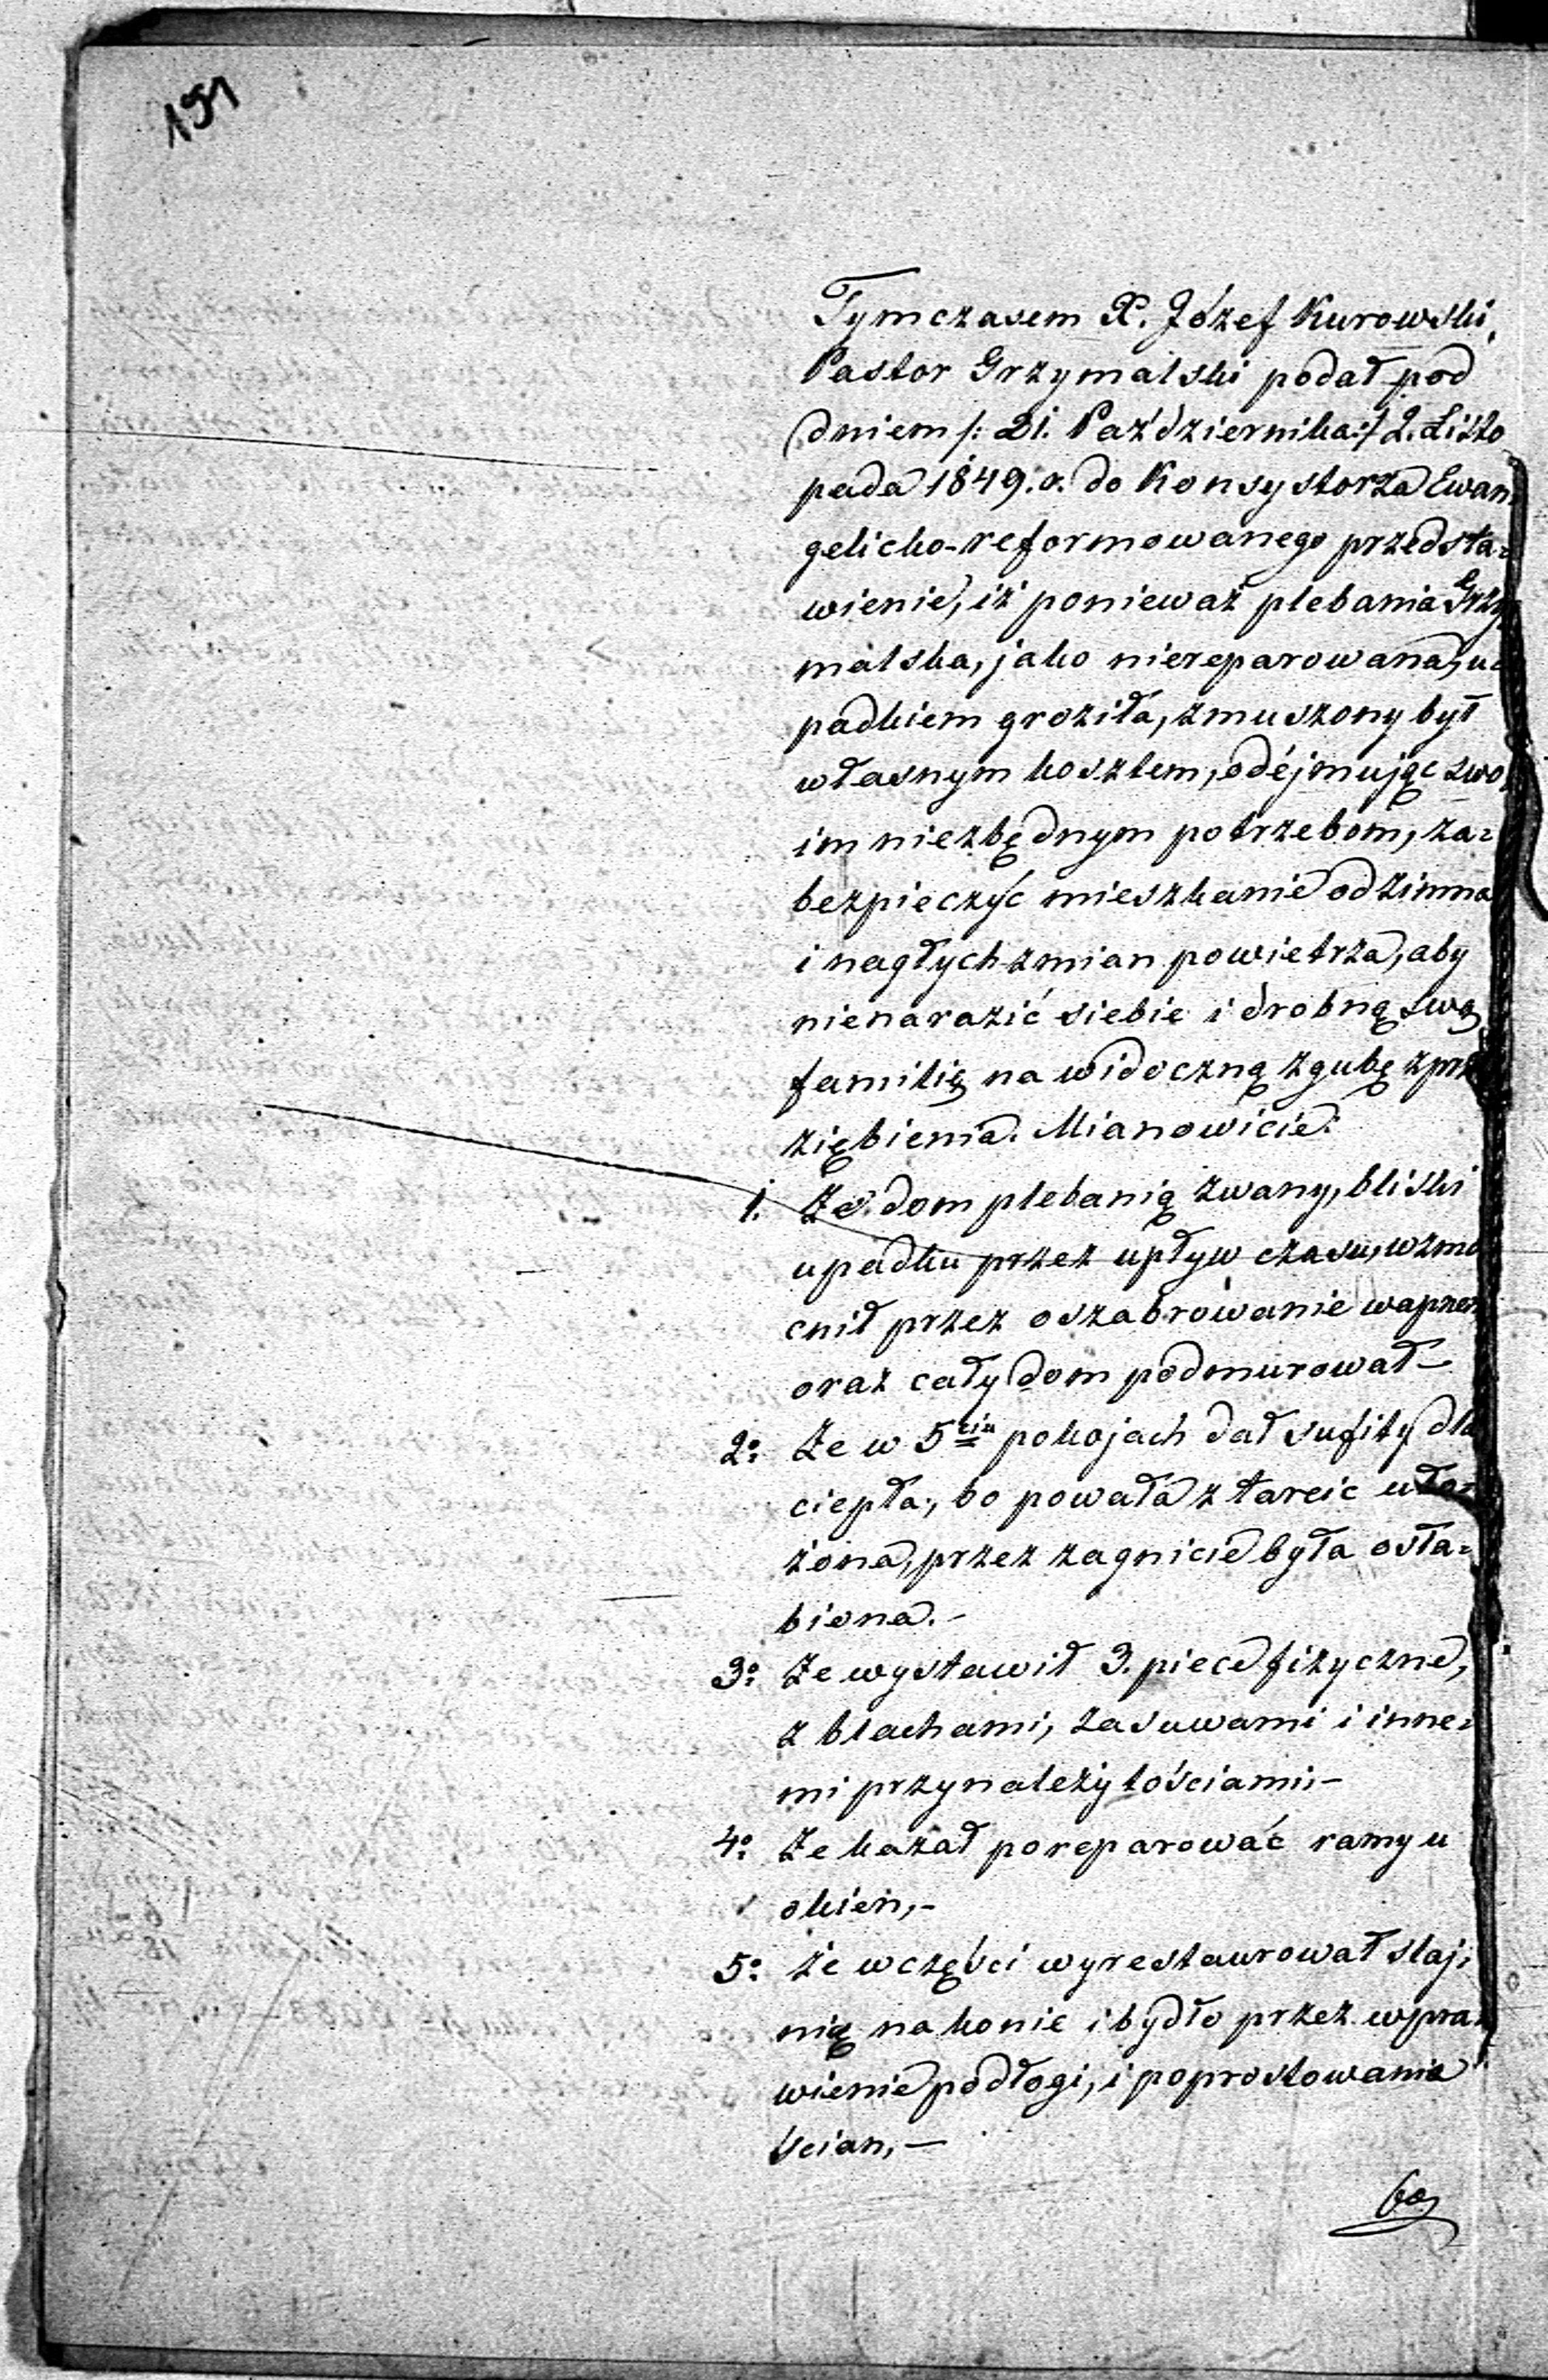 191
Tymczasem X. Józef Kurowski,
Pastor Grzymalski podał pod
dniem /: 21. Października :/ 2. Listo
pada 1849. r. do Konsystorza Ewan
gelicko-reformowanego przedsta=
wienie, iż ponieważ plebania Grzy
malska, jako niereparowana, u
padkiem groziła, zmuszony był
własnym kosztem, odéjmując swo
im niezbędnym potrzebom, za=
bezpieczyć mieszkanie od zimna
i nagłych zmian powietrza, aby
nienarazić siebie i drobną swą
familię na widoczną zgubę z prze
ziębienia. Mianowicie:
1. Że dom plebanią zwany, bliski
upadku przez upływ czasu, wzmo
cnił przez oszabrowanie wapnem
oraz cały dom podmurował —
2o: Że w 5ciu pokojach dał sufity dla
ciepła, bo powała z tarcic uło=
żona, przez zagnicie była osła=
biona. -
3o: Że wystawił 3. piece fizyczne,
z blachami, zasuwami i inne=
mi przynależytościami, -
4o: Że kazał poreparować ramy u
okien, -
5o: że w części wyrestaurował staj=
nię na konie i bydło przez wpra=
wienie podłogi, i poprostowanie
ścian, —
6o: